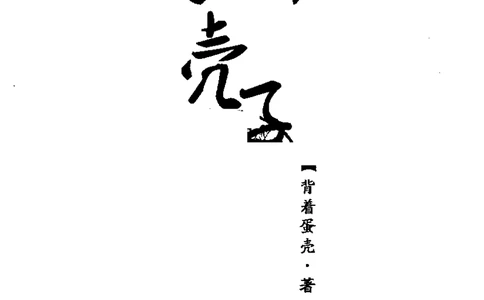 壳子
【背着蛋壳·著